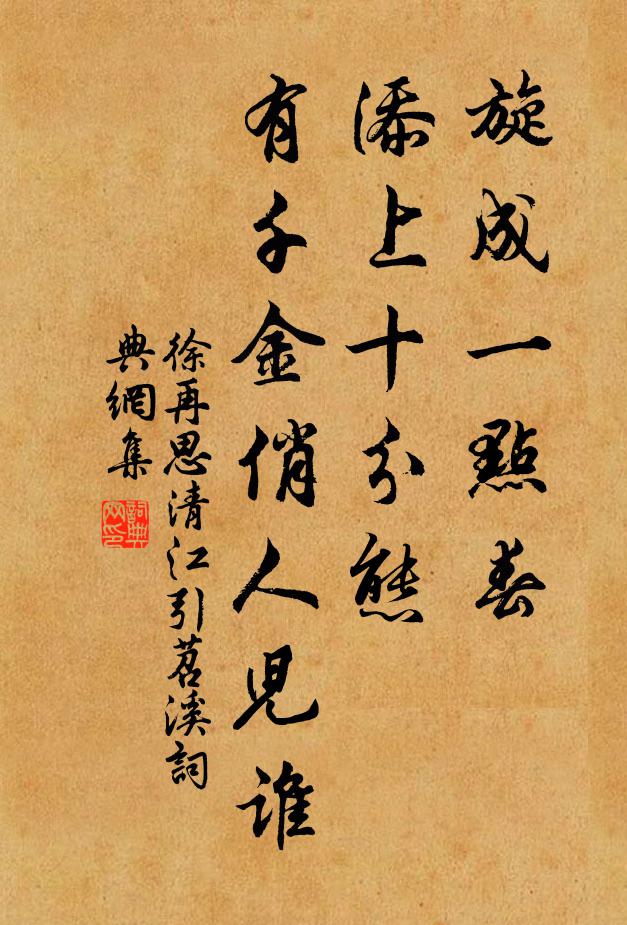 旋成一點春
添上十分態
有千金俏人兒誰
徐再思清江引茗溪詞
典網集
詞典
网印